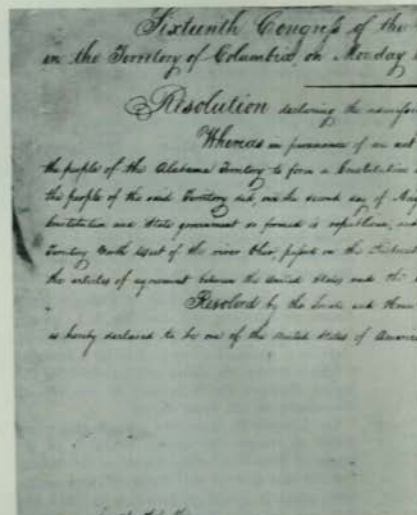 Sixteenth Congress of the
in the Territory of Columbia, on Monday
Resolution declaring the
Whereas in pursuance of an act
the people of the Alabama Territory to form a Constitution
the people of the said Territory did, on the second day of
Constitution and State government so formed is republican, and
Territory North West of the river Ohio, passed on the
the articles of agreement between the United States and the
Resolved by the Senate and
is hereby declared to be one of the United States of America